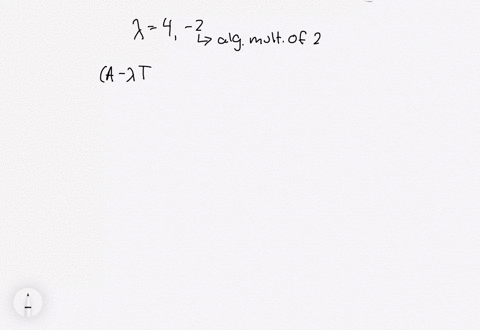 λ = 4, -2
↳ alg. mult. of 2
(A - λ T